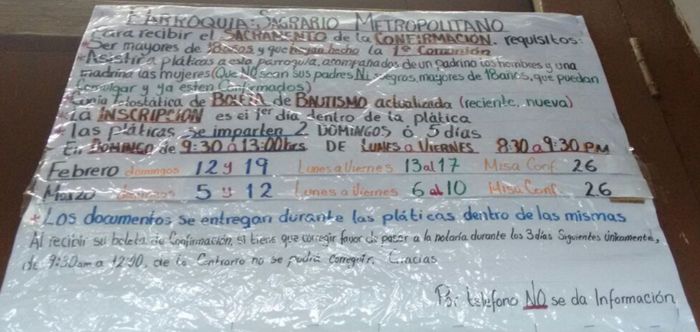 PARROQUIA: SAGRARIO METROPOLITANO
Para recibir el SACRAMENTO de la CONFIRMACIÓN. requisitos:
*Ser mayores de años y que hayan hecho la 1ª Comunión
*Asistir a pláticas a esta parroquia, acompañados de un padrino los hombres y una
madrina las mujeres (Que NO sean sus padres NI suegros, mayores de 18 años, que puedan
Comulgar y ya estén Confirmados)
*Copia fotostática de BOLETA de BAUTISMO actualizada (reciente, nueva)
*LA INSCRIPCIÓN es el 1er día dentro de la plática
*las pláticas se imparten 2 DOMINGOS ó 5 días
*En DOMINGO de 9:30 a 13:00hrs DE LUNES a VIERNES 8:30 a 9:30 PM
Febrero domingos 12 y 19 Lunes a Viernes 13 al 17 Misa Conf. 26
Marzo domingos 5 y 12 Lunes a Viernes 6 al 10 Misa Conf. 26
*LOS documentos se entregan durante las pláticas dentro de las mismas
Al recibir su boleta de Confirmación, si tiene que corregir favor de pasar a la notaría durante los 3 días siguientes únicamente,
de 9:30am a 12:30, de lo Contrario no se podrá corregir. Gracias
Por teléfono NO se da Información